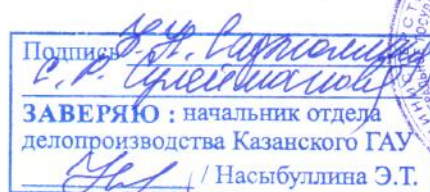 Подпись
С. Р. Сулейманов
ЗАВЕРЯЮ : начальник отдела
делопроизводства Казанского ГАУ
/ Насыбуллина Э.Т.